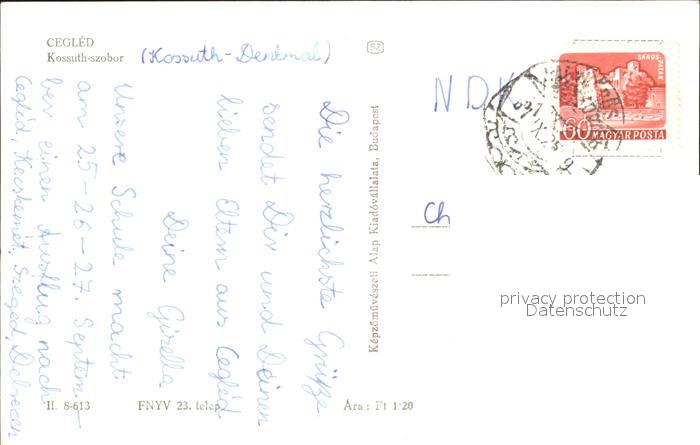 CEGLÉD
Kossuth-szobor
(Kossuth-Denkmal)
Die herzlichste Grüße
sendet Dir und Deinen
lieben Eltern aus Cegléd
Deine Gizella
Unsere Schule macht
am 25-26-27. Septem-
ber einen Ausflug nach
Cegléd, Kecskemét, Szeged, Debrecen
II. 8-613
FNYV 23. telep.
Ára: Ft 1·20
Képzőművészeti Alap Kiadóvállalata, Budapest
SZ
NDK
SÁROS-PATAK
60 MAGYAR POSTA
Ch
privacy protection
Datenschutz